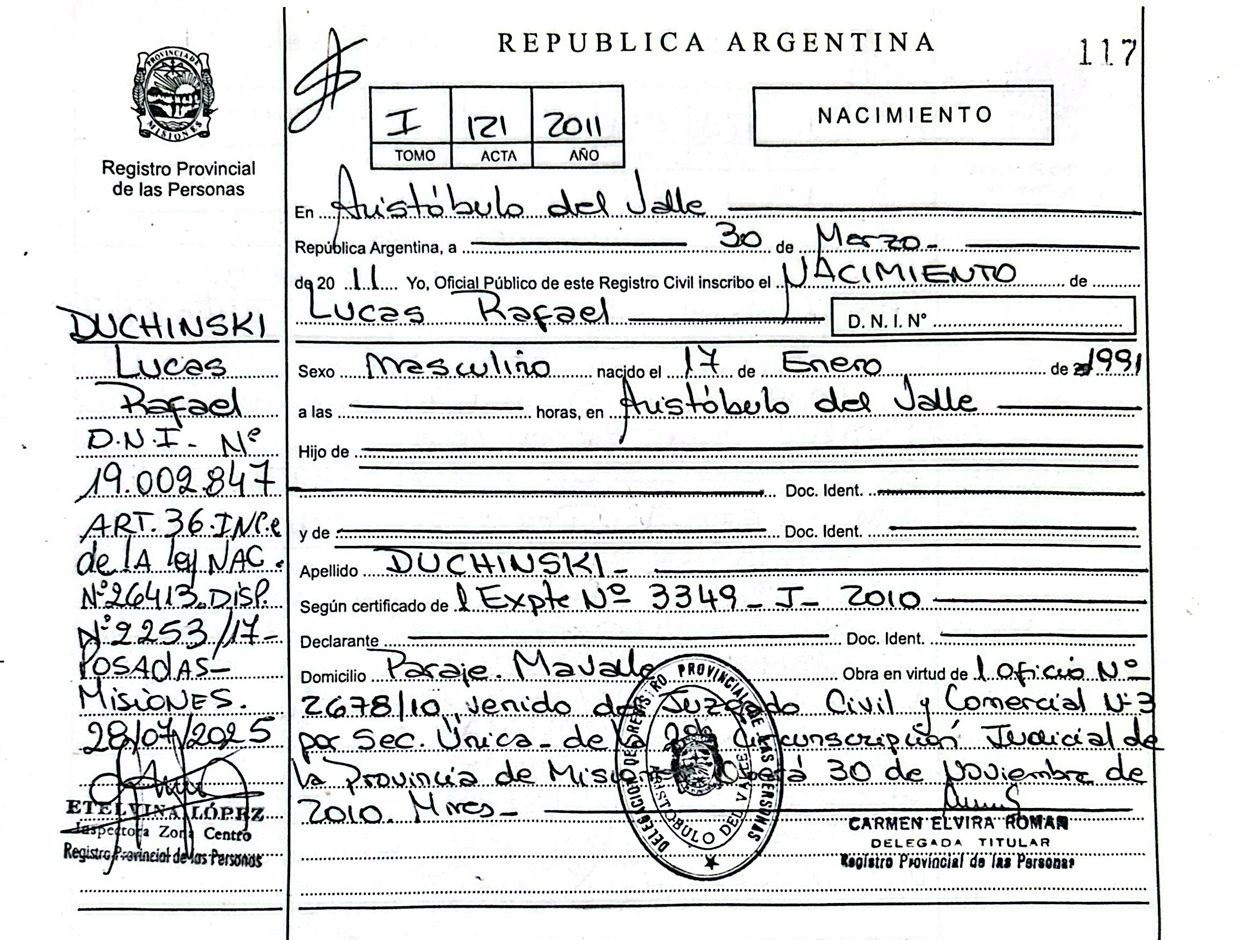 REPUBLICA ARGENTINA
117
PROVINCIA DE MISIONES
Registro Provincial
de las Personas
I 121 2011
TOMO ACTA AÑO
NACIMIENTO
En Aristóbulo del Valle
República Argentina, a 30 de Marzo
de 20 11 Yo, Oficial Público de este Registro Civil inscribo el NACIMIENTO de
Lucas Rafael D. N. I. Nº
Sexo Masculino nacido el 17 de Enero de 1991
a las horas, en Aristóbulo del Valle
Hijo de
Doc. Ident.
y de Doc. Ident.
Apellido DUCHINSKI
Según certificado de l Expte Nº 3349 - I - 2010
Declarante Doc. Ident.
Domicilio Paraje Mavalle Obra en virtud de l oficio Nº
2678/10 venido del Juzgado Civil y Comercial Nº 3
por Sec. Única - de la 2da Circunscripción Judicial de
la Provincia de Misiones Oberá 30 de Noviembre de
2010.
CARMEN ELVIRA ROMAN
DELEGADA TITULAR
Registro Provincial de las Personas
DELEGACION DEL REGISTRO PROVINCIAL DE LAS PERSONAS
ARISTOBULO DEL VALLE
DUCHINSKI
Lucas
Rafael
D.N.I - Nº
19.002.847
ART. 36 INC. e
de lA ley NAC.
Nº 26413. DISP.
Nº 2253/17-
POSADAS-
MISIONES.
28/07/2025
ETELVINA LÓPEZ
Inspectora Zona Centro
Registro Provincial de las Personas